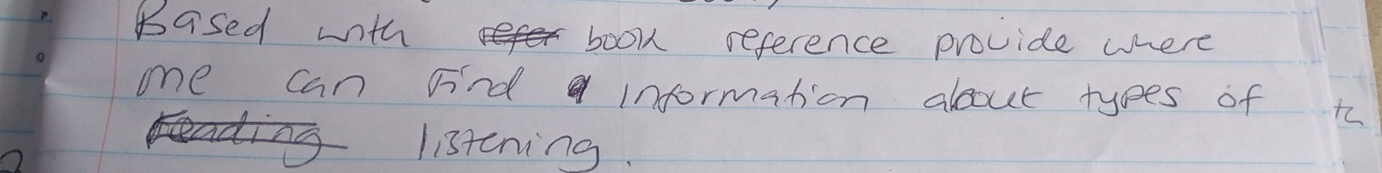 Based with refer book reference provide where
me can Find a information about types of
Reading listening.